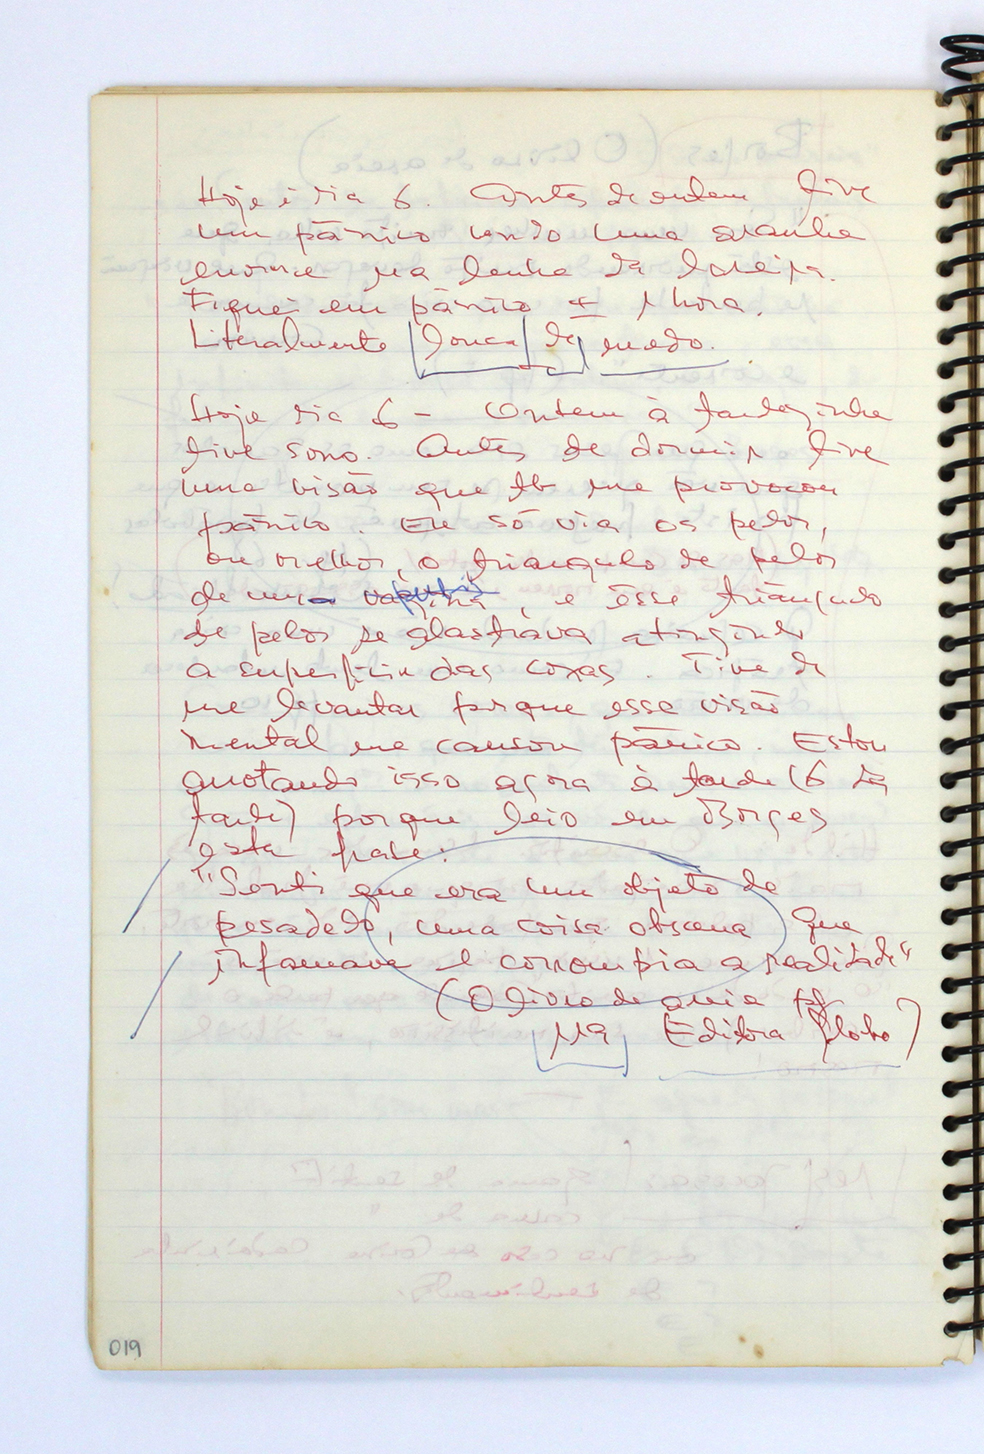 Hoje é dia 6. Antes de ontem tive
um pânico vendo uma aranha
enorme na lenha da lareira.
Fiquei em pânico ± 1 hora.
Literalmente louca de medo.
Hoje dia 6 - Ontem à tardezinha
tive sono. Antes de dormir tive
uma visão que tb me provocou
pânico. Eu só via os pelos,
ou melhor, o triangulo de pelos
de uma vagina, e êsse triângulo
de pelos se alastrava atingindo
a superfície das coxas. Tive de
me levantar porque essa visão
mental me causou pânico. Estou
anotando isso agora à tarde (6 da
tarde) porque leio em Borges
esta frase:
"Senti que era um objeto de
pesadelo, uma coisa obscena que
infamava e corrompia a realidade"
(O livro de areia
Editora Globo)
019